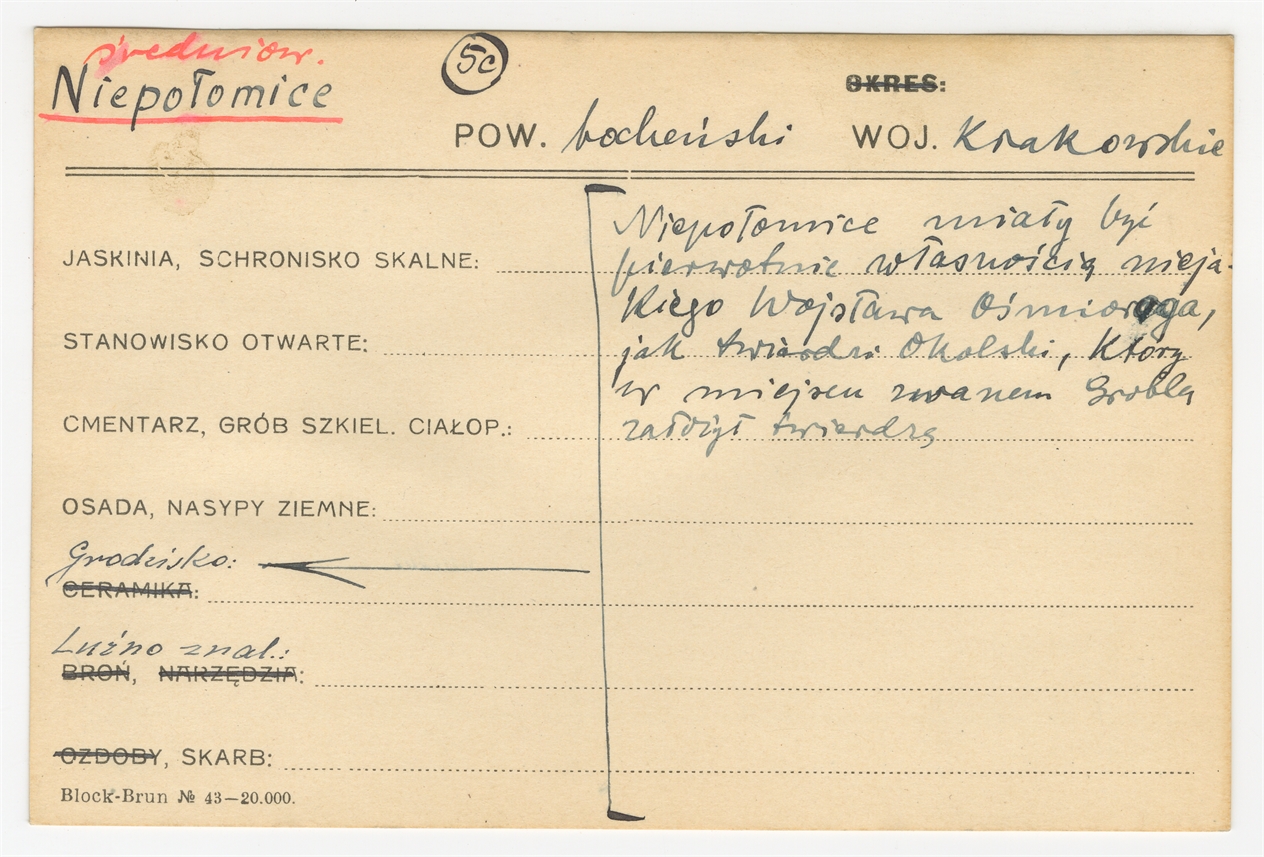 średniow.
Niepołomice
5c
OKRES:
POW. bocheński WOJ. Krakowskie
Niepołomice miały być
pierwotnie własnością nieja-
kiego Wojsława Ośmioroga,
jak twierdzi Okolski, który
w miejscu zwanem Grobla
założył twierdzę
JASKINIA, SCHRONISKO SKALNE:
STANOWISKO OTWARTE:
CMENTARZ, GRÓB SZKIEL. CIAŁOP.:
OSADA, NASYPY ZIEMNE:
Grodzisko:
CERAMIKA:
Luźno znal.:
BROŃ, NARZĘDZIA:
OZDOBY, SKARB:
Block-Brun № 43—20.000.